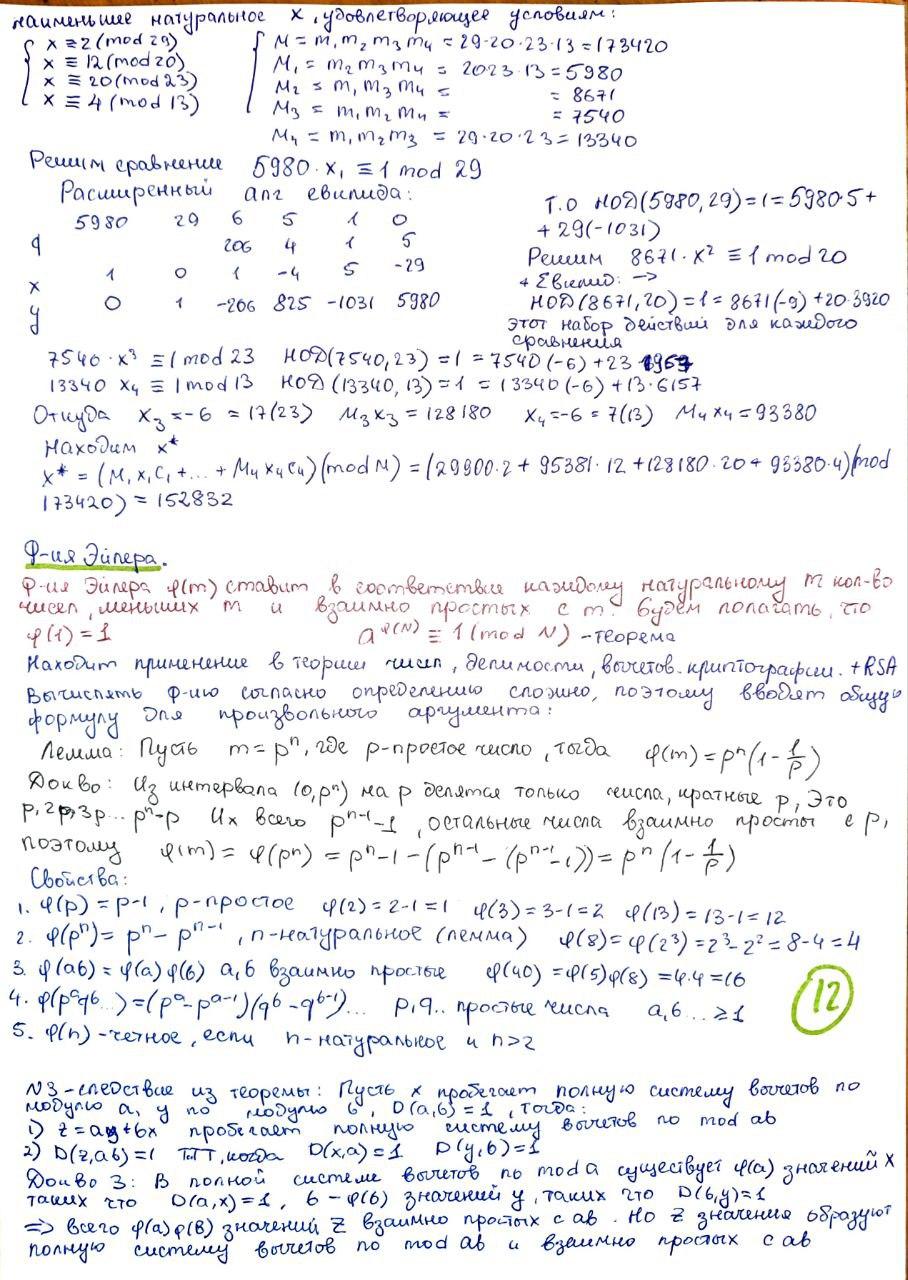 наименьшее натуральное x, удовлетворяющее условиям:
x ≡ 2 (mod 29)
x ≡ 12 (mod 20)
x ≡ 20 (mod 23)
x ≡ 4 (mod 13)
M = m₁m₂m₃m₄ = 29·20·23·13 = 173420
M₁ = m₂m₃m₄ = 20 23·13 = 5980
M₂ = m₁m₃m₄ = = 8671
M₃ = m₁m₂m₄ = = 7540
M₄ = m₁m₂m₃ = 29·20·23 = 13340
Решим сравнение 5980·x₁ ≡ 1 mod 29
Расширенный алг евклида:
5980 29 6 5 1 0
q 206 4 1 5
x 1 0 1 -4 5 -29
y 0 1 -206 825 -1031 5980
Т.О НОД(5980,29) = 1 = 5980·5 +
+ 29(-1031)
Решим 8671·x² ≡ 1 mod 20
+ Евклид: →
НОД(8671,20) = 1 = 8671(-9) + 20·3920
этот набор действий для каждого
сравнения
7540·x³ ≡ 1 mod 23 НОД(7540,23) = 1 = 7540(-6) + 23·1967
13340 x₄ ≡ 1 mod 13 НОД(13340,13) = 1 = 13340(-6) + 13·6157
Откуда x₃ = -6 = 17(23) M₃x₃ = 128180 x₄ = -6 = 7(13) M₄x₄ = 93380
Находим x*
x* = (M₁x₁c₁ + ... + M₄x₄c₄)(mod M) = (29900·2 + 95381·12 + 128180·20 + 93380·4)(mod
173420) = 152832
Ф-ия Эйлера.
Ф-ия Эйлера φ(m) ставит в соответствие каждому натуральному m кол-во
чисел, меньших m и взаимно простых с m. Будем полагать, что
φ(1) = 1 a^φ(N) ≡ 1 (mod N) - теорема
Находит применение в теории чисел, делимости, вычетов. криптографии. + RSA
Вычислять ф-ию согласно определению сложно, поэтому вводят общую
формулу для произвольного аргумента:
Лемма: Пусть m = pⁿ, где p-простое число, тогда φ(m) = pⁿ(1 - 1/p)
Док во: Из интервала (0, pⁿ) на p делятся только числа, кратные p, Это
p, 2p, 3p... pⁿ-p Их всего pⁿ⁻¹-1, остальные числа взаимно просты с p,
поэтому φ(m) = φ(pⁿ) = pⁿ-1-(pⁿ⁻¹-(pⁿ⁻¹-1)) = pⁿ(1 - 1/p)
Свойства:
1. φ(p) = p-1, p-простое φ(2) = 2-1 = 1 φ(3) = 3-1 = 2 φ(13) = 13-1 = 12
2. φ(pⁿ) = pⁿ - pⁿ⁻¹, n-натуральное (лемма) φ(8) = φ(2³) = 2³-2² = 8-4 = 4
3. φ(ab) = φ(a)φ(b) a, b взаимно простые φ(40) = φ(5)φ(8) = 4·4 = 16
4. φ(pᵃqᵇ...) = (pᵃ-pᵃ⁻¹)(qᵇ-qᵇ⁻¹)... p, q.. простые числа a, b... ≥ 1
5. φ(n) - четное, если n-натуральное и n>2
12
N3 - следствие из теоремы: Пусть x пробегает полную систему вычетов по
модулю a, y по модулю b, D(a,b) = 1, тогда:
1) z = ay + bx пробегает полную систему вычетов по mod ab
2) D(z,ab) = 1 ТТТ, когда D(x,a) = 1 D(y,b) = 1
Док во 3: В полной системе вычетов по mod a существует φ(a) значений x
таких что D(a,x) = 1, b - φ(b) значений y, таких что D(b,y) = 1
⇒ всего φ(a)φ(b) значений z взаимно простых с ab. Но z значения образуют
полную систему вычетов по mod ab и взаимно простых с ab